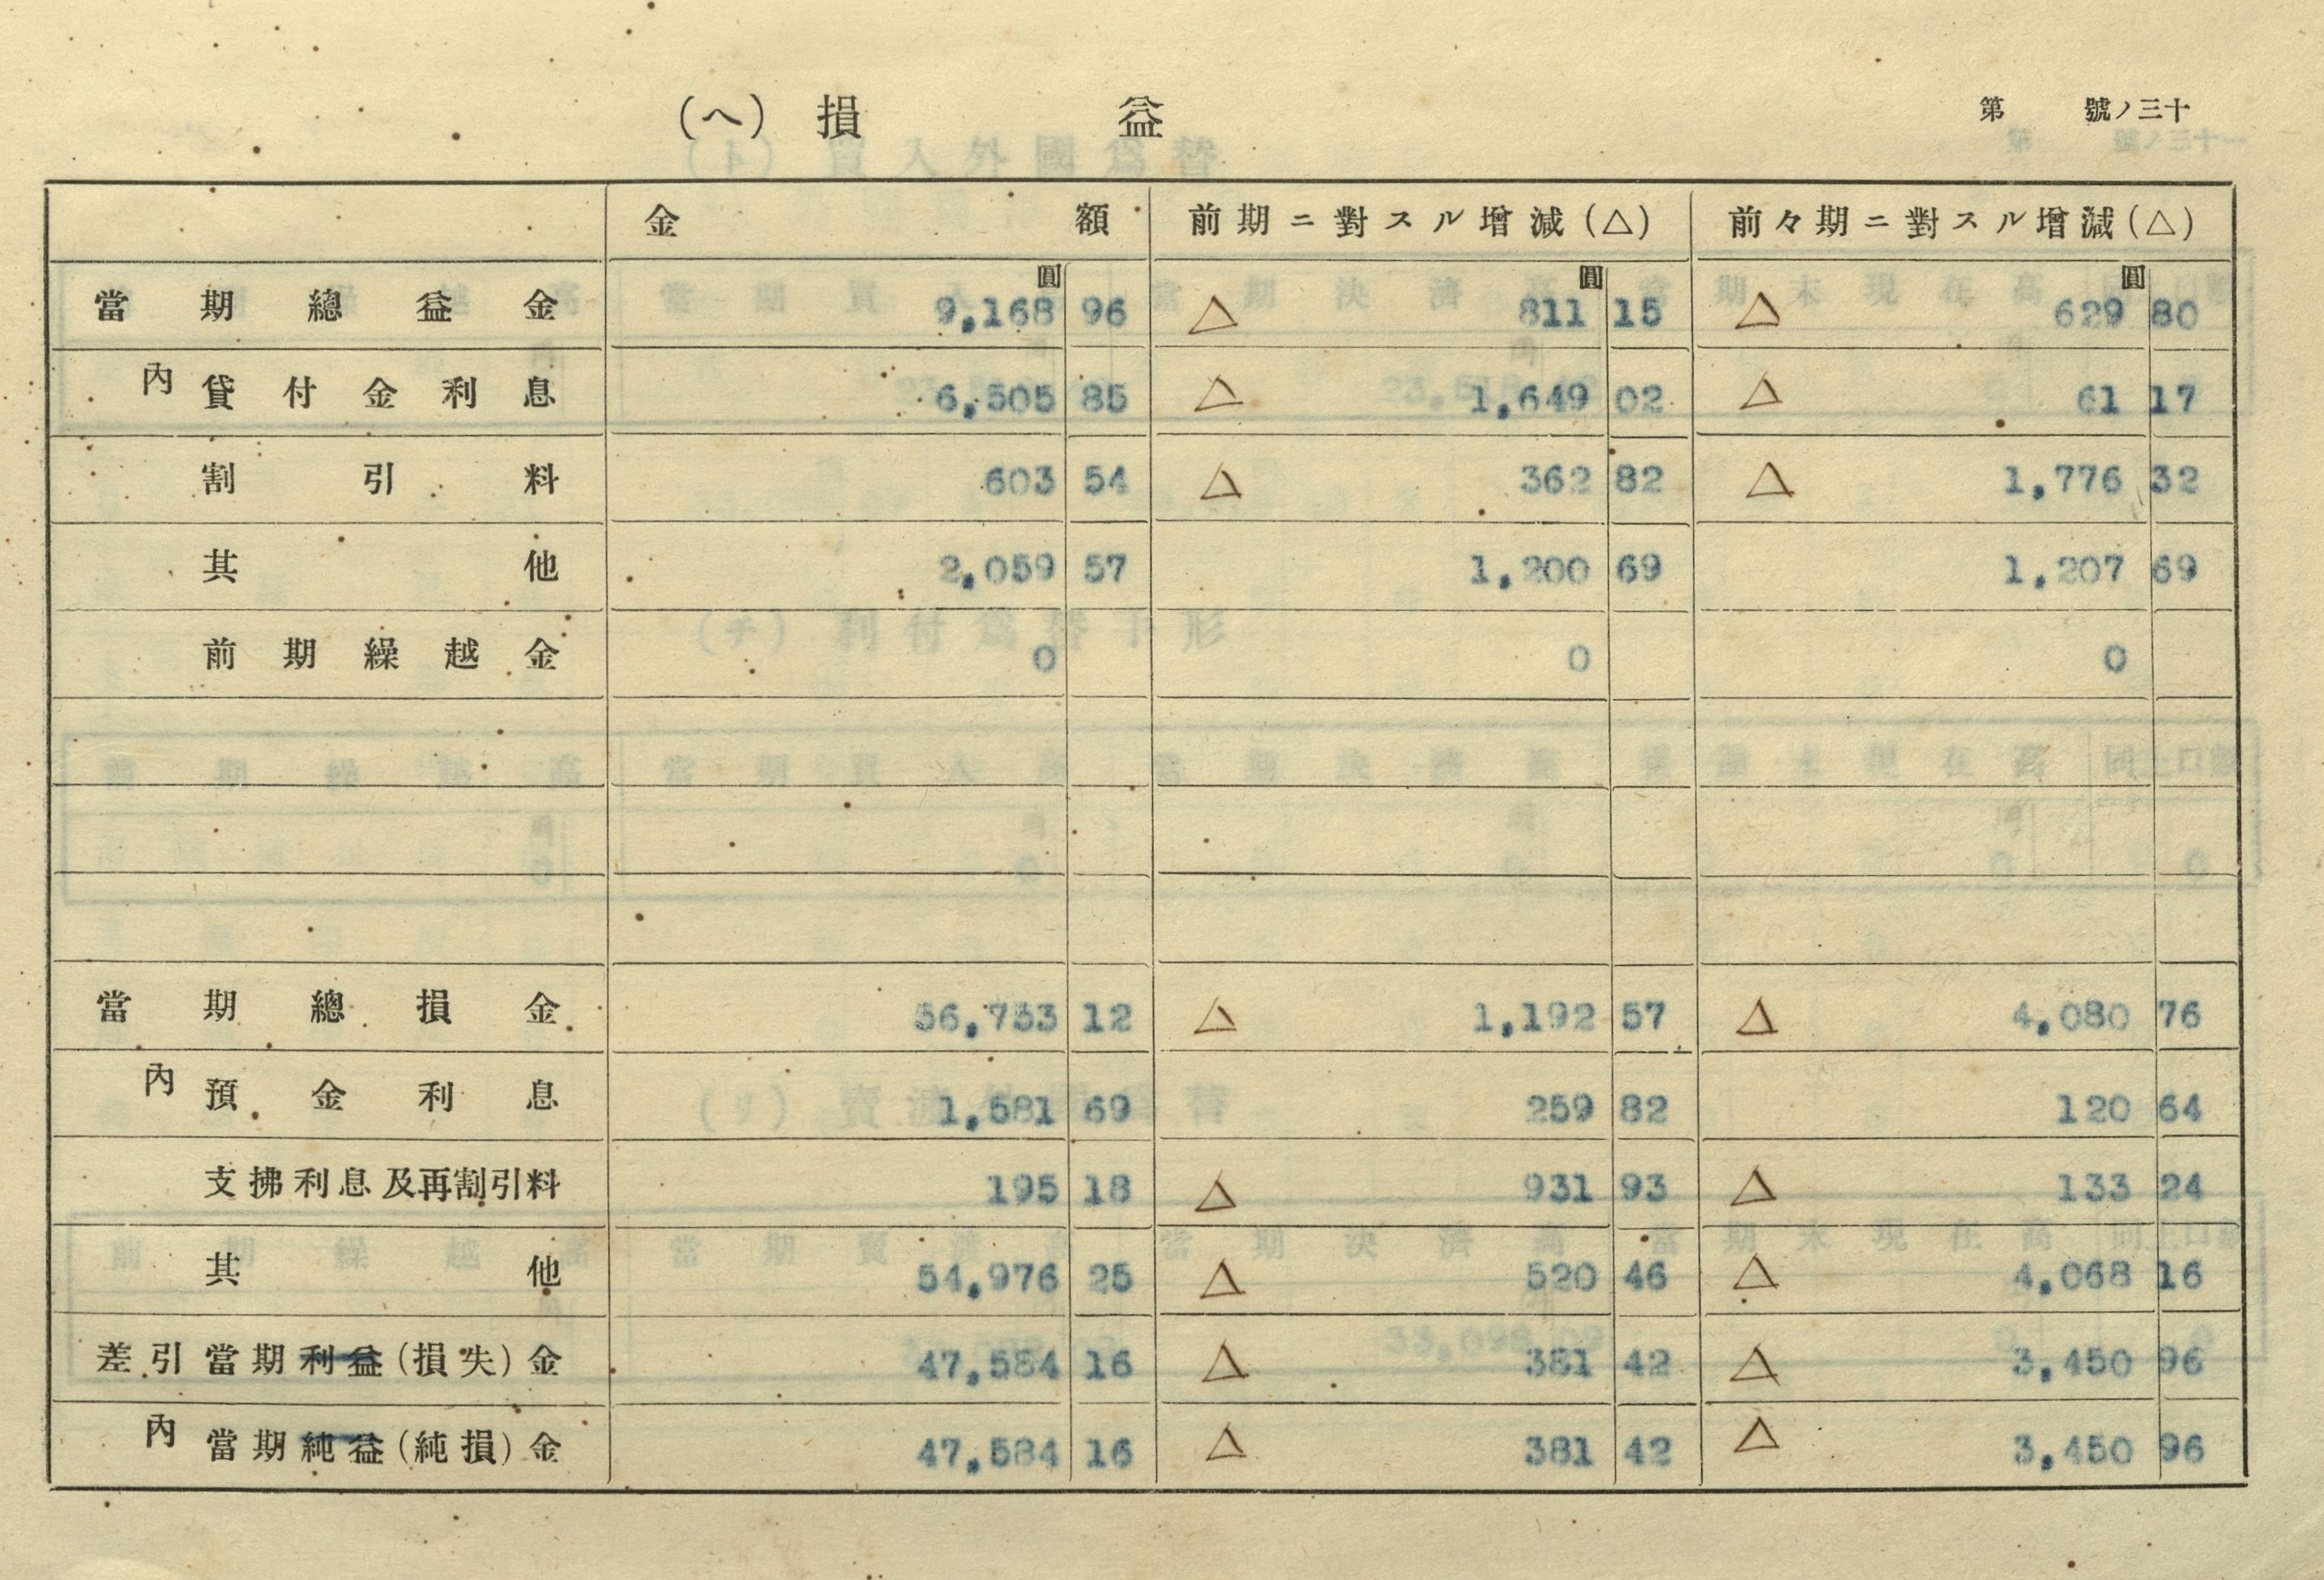 (ヘ) 損益
第 號ノ三十
金額 前期ニ對スル增減(△) 前々期ニ對スル增減(△)
當期總益金 9,168圓96 △ 811圓15 △ 629圓80
內 貸付金利息 6,505 85 △ 1,649 02 △ 61 17
割引料 603 54 △ 362 82 △ 1,776 32
其他 2,059 57 1,200 69 1,207 69
前期繰越金 0 0 0
當期總損金 56,753 12 △ 1,192 57 △ 4,080 76
內 預金利息 1,581 69 259 82 120 64
支拂利息及再割引料 195 18 △ 931 93 △ 133 24
其他 54,976 25 △ 520 46 △ 4,068 16
差引當期利益(損失)金 47,584 16 △ 381 42 △ 3,450 96
內 當期純益(純損)金 47,584 16 △ 381 42 △ 3,450 96